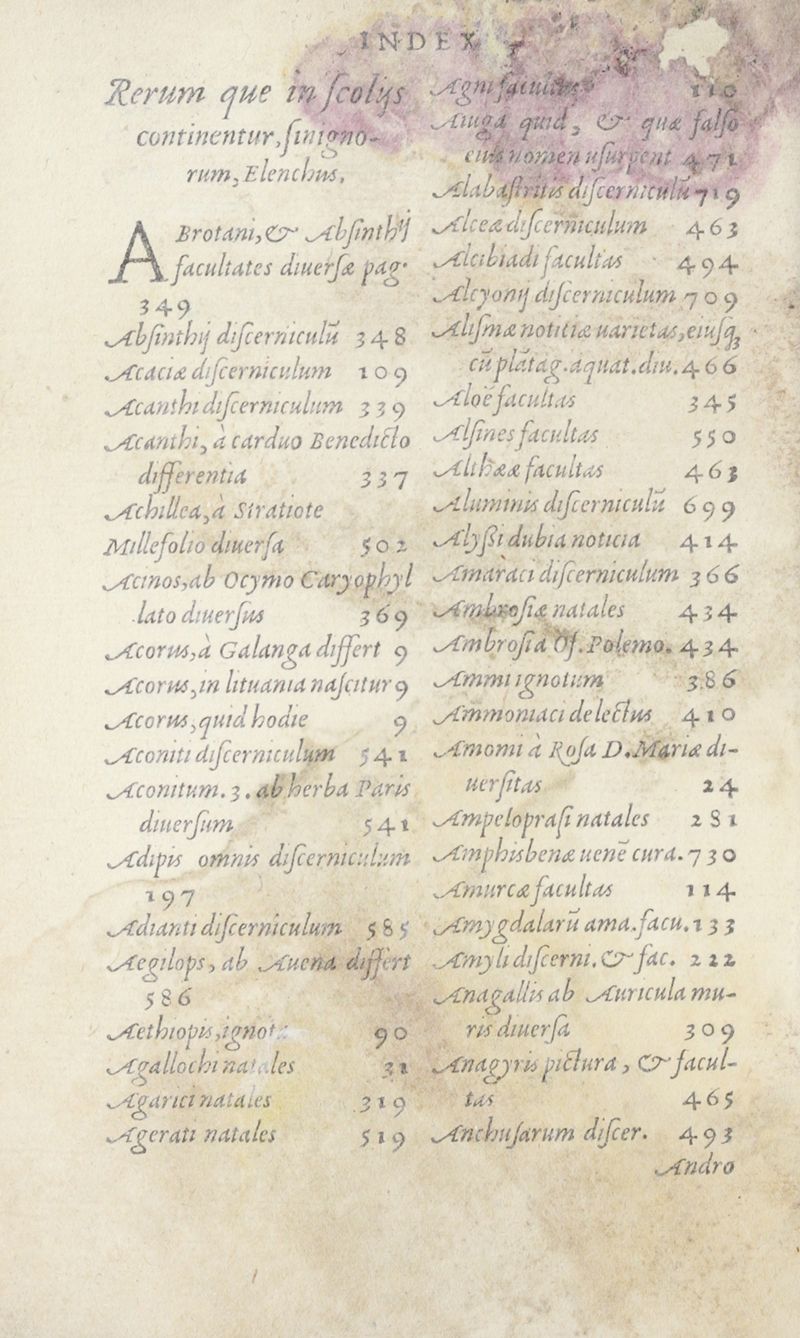 INDEX
Rerum que in ſcolijs
continentur, ſinigno-
rum, Elenchus,
ABrotani, & Abſinthij
facultates diuerſæ pag.
349
Abſinthij diſcerniculū 348
Acaciæ diſcerniculum 109
Acanthi diſcerniculum 339
Acanthi, à carduo Benedicto
differentia 337
Achillea, à Stratiote
Millefolio diuerſa 502
Acinos, ab Ocymo Caryophyl
lato diuerſus 369
Acorus, à Galanga differt 9
Acorus, in lituania naſcitur 9
Acorus, quid hodie 9
Aconiti diſcerniculum 541
Aconitum. 3. ab herba Paris
diuerſum 541
Adipis omnis diſcerniculum
197
Adianti diſcerniculum 585
Aegilops, ab Auena differt
586
Aethiopis, ignot 90
Agallochi natales 31
Agarici natales 319
Agerati natales 519
Agni facultas 110
Aiuga quid, & quæ falſo
eius nomen uſurpent 471
Alabaſtritis diſcerniculū 719
Alceæ diſcerniculum 463
Alcibiadi facultas 494
Alcyonij diſcerniculum 709
Aliſmæ notitiæ uarietas, eiuſq;
cū plātag. aquat. diu. 466
Aloë facultas 345
Alſines facultas 550
Althææ facultas 463
Aluminis diſcerniculū 699
Alyſſi dubia noticia 414
Amaraci diſcerniculum 366
Ambroſiæ natales 434
Ambroſia Of. Polemo. 434
Ammi ignotum 386
Ammoniaci delectus 410
Amomi à Roſa D. Mariæ di-
uerſitas 24
Ampelopraſi natales 281
Amphisbenæ uenē cura. 730
Amurcæ facultas 114
Amygdalarū ama. facu. 133
Amyli diſcerni. & fac. 222
Anagallis ab Auricula mu-
ris diuerſa 309
Anagyris pictura, & facul-
tas 465
Anchuſarum diſcer. 493
Andro